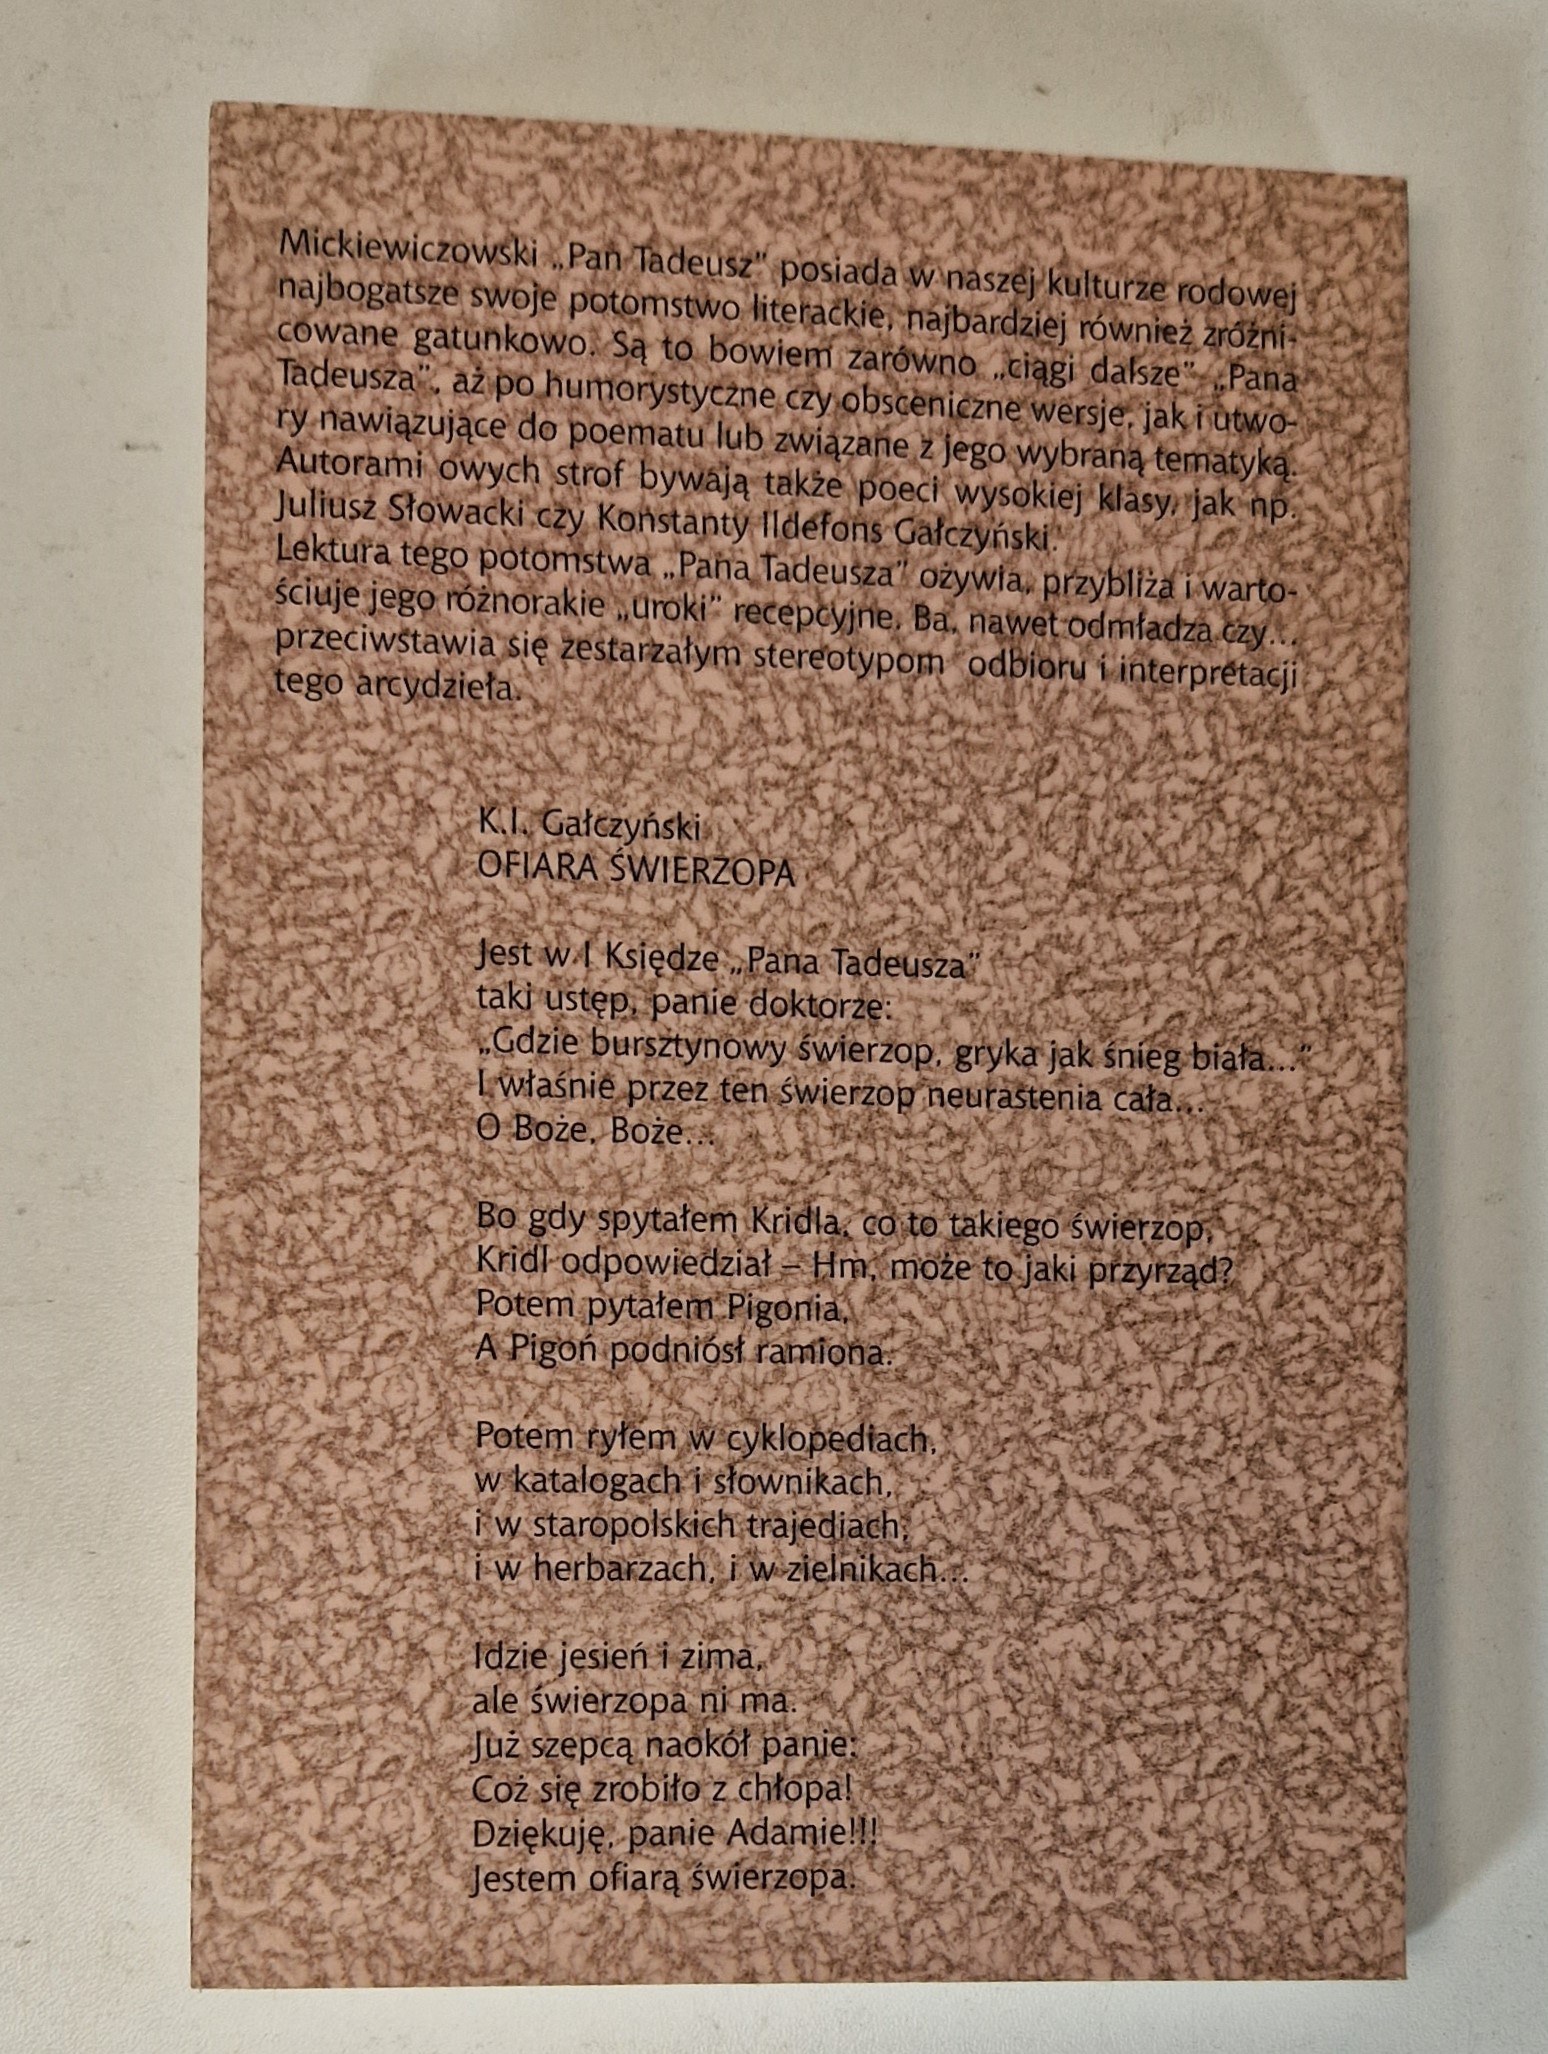 Mickiewiczowski „Pan Tadeusz” posiada w naszej kulturze rodowej
najbogatsze swoje potomstwo literackie, najbardziej również zróżni-
cowane gatunkowo. Są to bowiem zarówno „ciągi dalsze” „Pana
Tadeusza”, aż po humorystyczne czy obsceniczne wersje, jak i utwo-
ry nawiązujące do poematu lub związane z jego wybraną tematyką.
Autorami owych strof bywają także poeci wysokiej klasy, jak np.
Juliusz Słowacki czy Konstanty Ildefons Gałczyński.
Lektura tego potomstwa „Pana Tadeusza” ożywia, przybliża i warto-
ściuje jego różnorakie „uroki” recepcyjne. Ba, nawet odmładza czy...
przeciwstawia się zestarzałym stereotypom odbioru i interpretacji
tego arcydzieła.
K.I. Gałczyński
OFIARA ŚWIERZOPA
Jest w I Księdze „Pana Tadeusza”
taki ustęp, panie doktorze:
„Gdzie bursztynowy świerzop, gryka jak śnieg biała...”
I właśnie przez ten świerzop neurastenia cała...
O Boże, Boże...
Bo gdy spytałem Kridla, co to takiego świerzop,
Kridl odpowiedział – Hm, może to jaki przyrząd?
Potem pytałem Pigonia,
A Pigoń podniósł ramiona.
Potem ryłem w cyklopediach,
w katalogach i słownikach,
i w staropolskich trajediach,
i w herbarzach, i w zielnikach...
Idzie jesień i zima,
ale świerzopa ni ma.
Już szepcą naokół panie:
Coż się zrobiło z chłopa!
Dziękuję, panie Adamie!!!
Jestem ofiarą świerzopa.